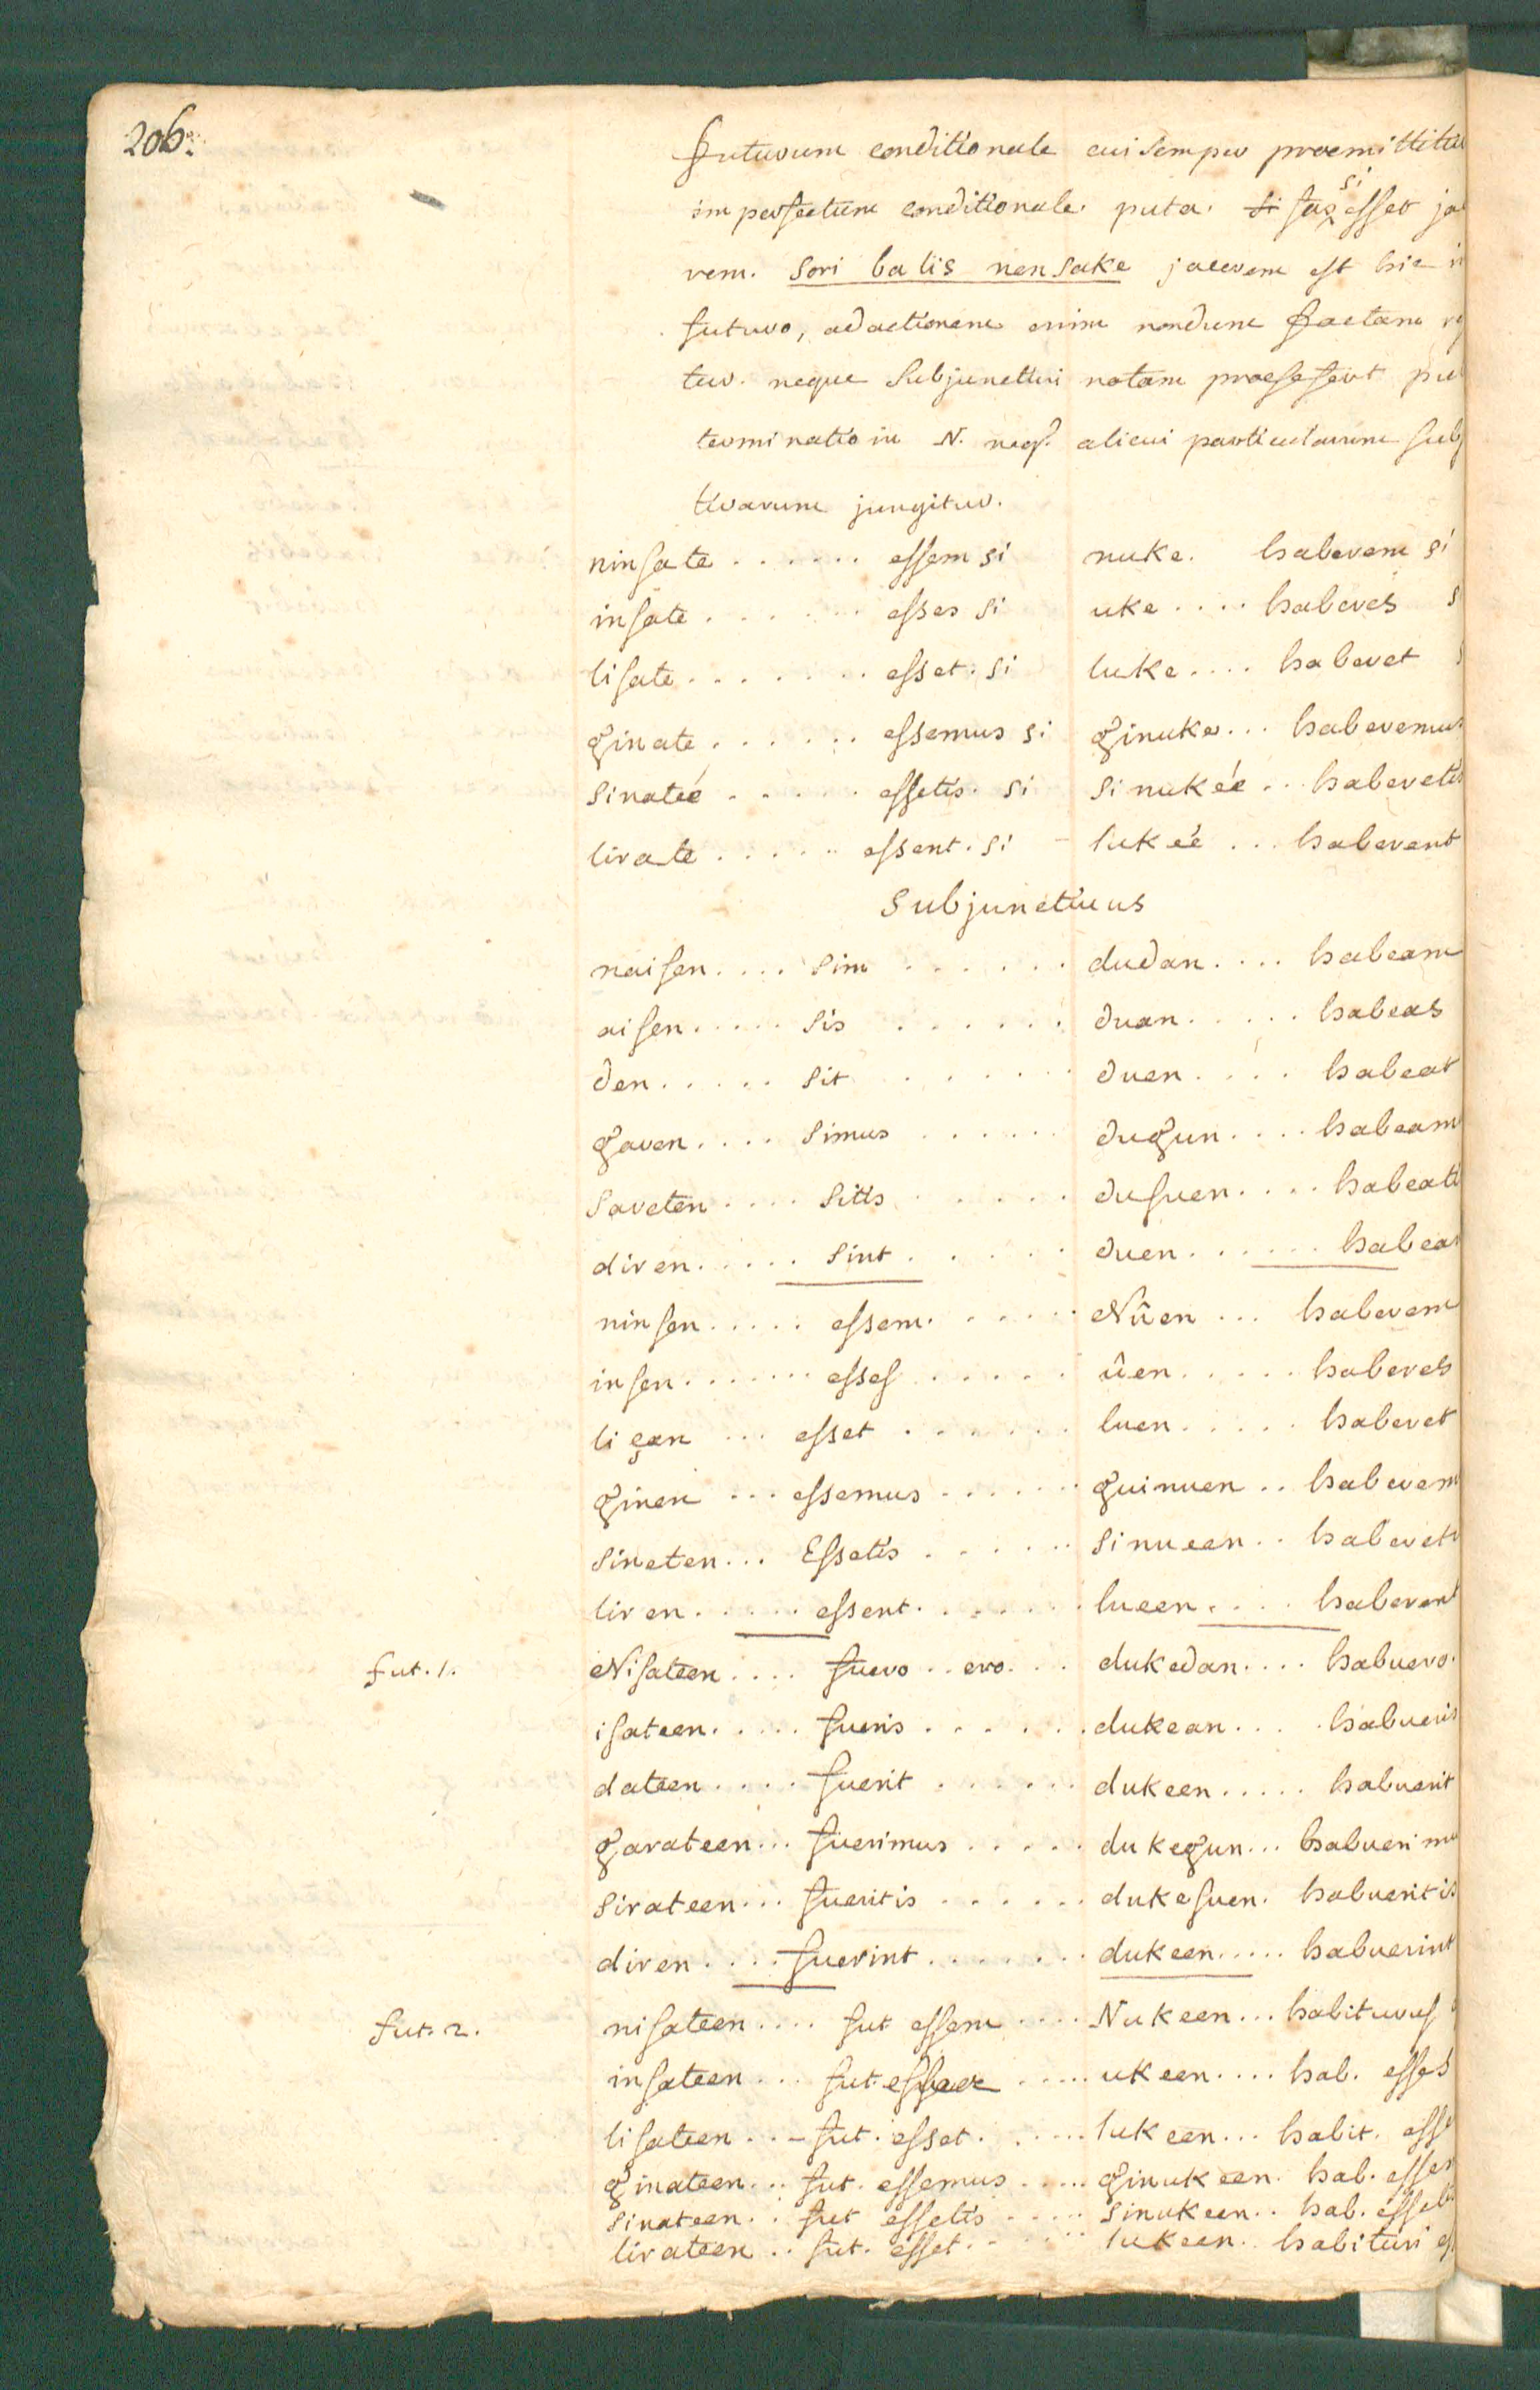 206.
futurum conditionale cui semper proemittitu
imperfectum conditionale. puta. si fas si esset ja
rem. sori balis nensake jacerem est hic in
futuro, ad actionem enim nondum factam
tur. neque Subjunctivi notam proesefert
terminatio in N. neqꝫ alicui particularum subj
tivarum jungitur.
ninsate ...... essem si nuke. haberem si
insate ...... esses si uke .... haberes s
lisate ...... esset. si luke .... haberet s
ginate ...... essemus si ginuke ... haberemus
sinateé ..... essetis. si sinukeé .. haberetis
lirate ..... essent. si lukeé ... haberent
Subjunctiuus
naisen .... sim ...... dudan .... habeam
aisen ..... sis ...... duan ..... habeas
den ..... sit ...... duen .... habeat
garen .... simus ...... dugun .... habeam
sareten .... sitis ..... dusuen .... habeati
diren ..... sint ..... duen ...... habea
ninsen ..... essem. ..... Nûen ... haberem
insen ....... esses ..... ûen ..... haberes
liçan ... esset ...... luen ..... haberet
ginen ... essemus ...... guinuen .. haberem
sineten ... Essetis ..... sinueen .. habereti
liren ..... essent. ...... lueen .... haberent
fut. 1. Nisateen .... fuero .. ero ... dukedan .... habuero.
isateen ..... fueris ...... dukean .... habueris
dateen .... fuerit ...... dukeen ..... habuerit
garateen ... fuerimus ..... dukegun ... habuerimu
sirateen ... fueritis ...... dukesuen. habueritis
diren .... fuerint ....... dukeen ..... habuerint
fut. 2. nisateen .... fut essem .... Nukeen ... habiturus
insateen ... fut. ..... ukeen .... hab. esses
lisateen ... fut. esset. ..... lukeen ... habit. esse
ginateen ... fut. essemus ..... ginukeen. hab. essem
sinateen .. fut essetis ..... sinukeen .. hab. esseti
lirateen .. fut. esset. ..... lukeen .. habituri es